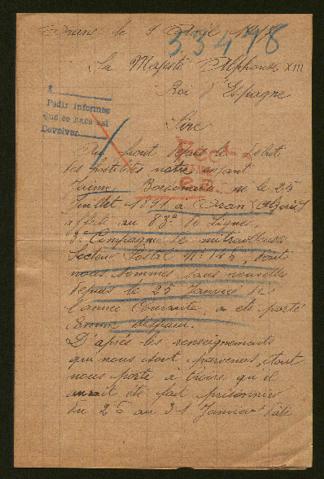 le
33418
Sa Majesté Alphonse XIII
Roi d'Espagne
Pedir informes
que se hace así
Devolver
Sire
depuis le début
des hostilités notre enfant
né le 25
Juillet 1891 à Oran (Algérie)
affecté au 83e de Ligne,
Compagnie de mitrailleuses
Secteur Postal N° dont
nous sommes sans nouvelles
depuis le 25 Janvier de
l'année Courante, a été porté
Comme disparu.
D'après les renseignements
qui nous sont parvenus, tout
nous porte à croire qu'il
aurait été fait prisonnier
du 25 au 31 Janvier